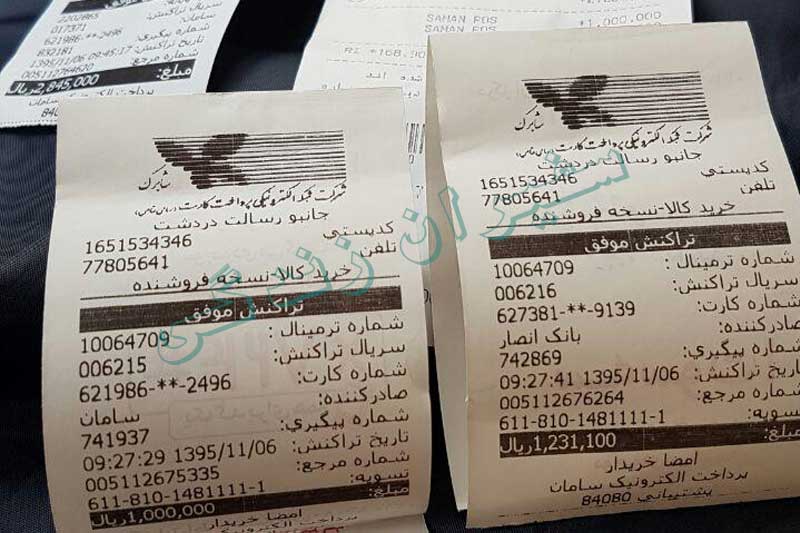 2202865
سریال تراکنش:
017371
سامان
621986-**-2496
شماره پیگیری:
832181
تاریخ تراکنش:
1395/11/06 09:45:17
شماره مرجع:
005112764620
مبلغ: 2,845,000ریال
پرداخت الکترونیک سامان
SAMAN POS
SAMAN POS
+1,000,000
شاپرک
شرکت شبکه الکترونیکی پرداخت کارت
جانبو رسالت دردشت
کدپستی 1651534346
تلفن 77805641
خرید کالا-نسخه فروشنده
تراکنش موفق
شماره ترمینال: 10064709
سریال تراکنش: 006215
شماره کارت: 621986-**-2496
صادرکننده: سامان
شماره پیگیری: 741937
تاریخ تراکنش: 1395/11/06 09:27:29
شماره مرجع: 005112675335
تسویه: 611-810-1481111-1
مبلغ: 1,000,000ریال
امضا خریدار
پرداخت الکترونیک
شاپرک
شرکت شبکه الکترونیکی پرداخت کارت
جانبو رسالت دردشت
کدپستی 1651534346
تلفن 77805641
خرید کالا-نسخه فروشنده
تراکنش موفق
شماره ترمینال: 10064709
سریال تراکنش: 006216
شماره کارت: 627381-**-9139
صادرکننده: بانک انصار
شماره پیگیری: 742869
تاریخ تراکنش: 1395/11/06 09:27:41
شماره مرجع: 005112676264
تسویه: 611-810-1481111-1
مبلغ: 1,231,100ریال
امضا خریدار
پرداخت الکترونیک سامان
پشتیبانی 84080